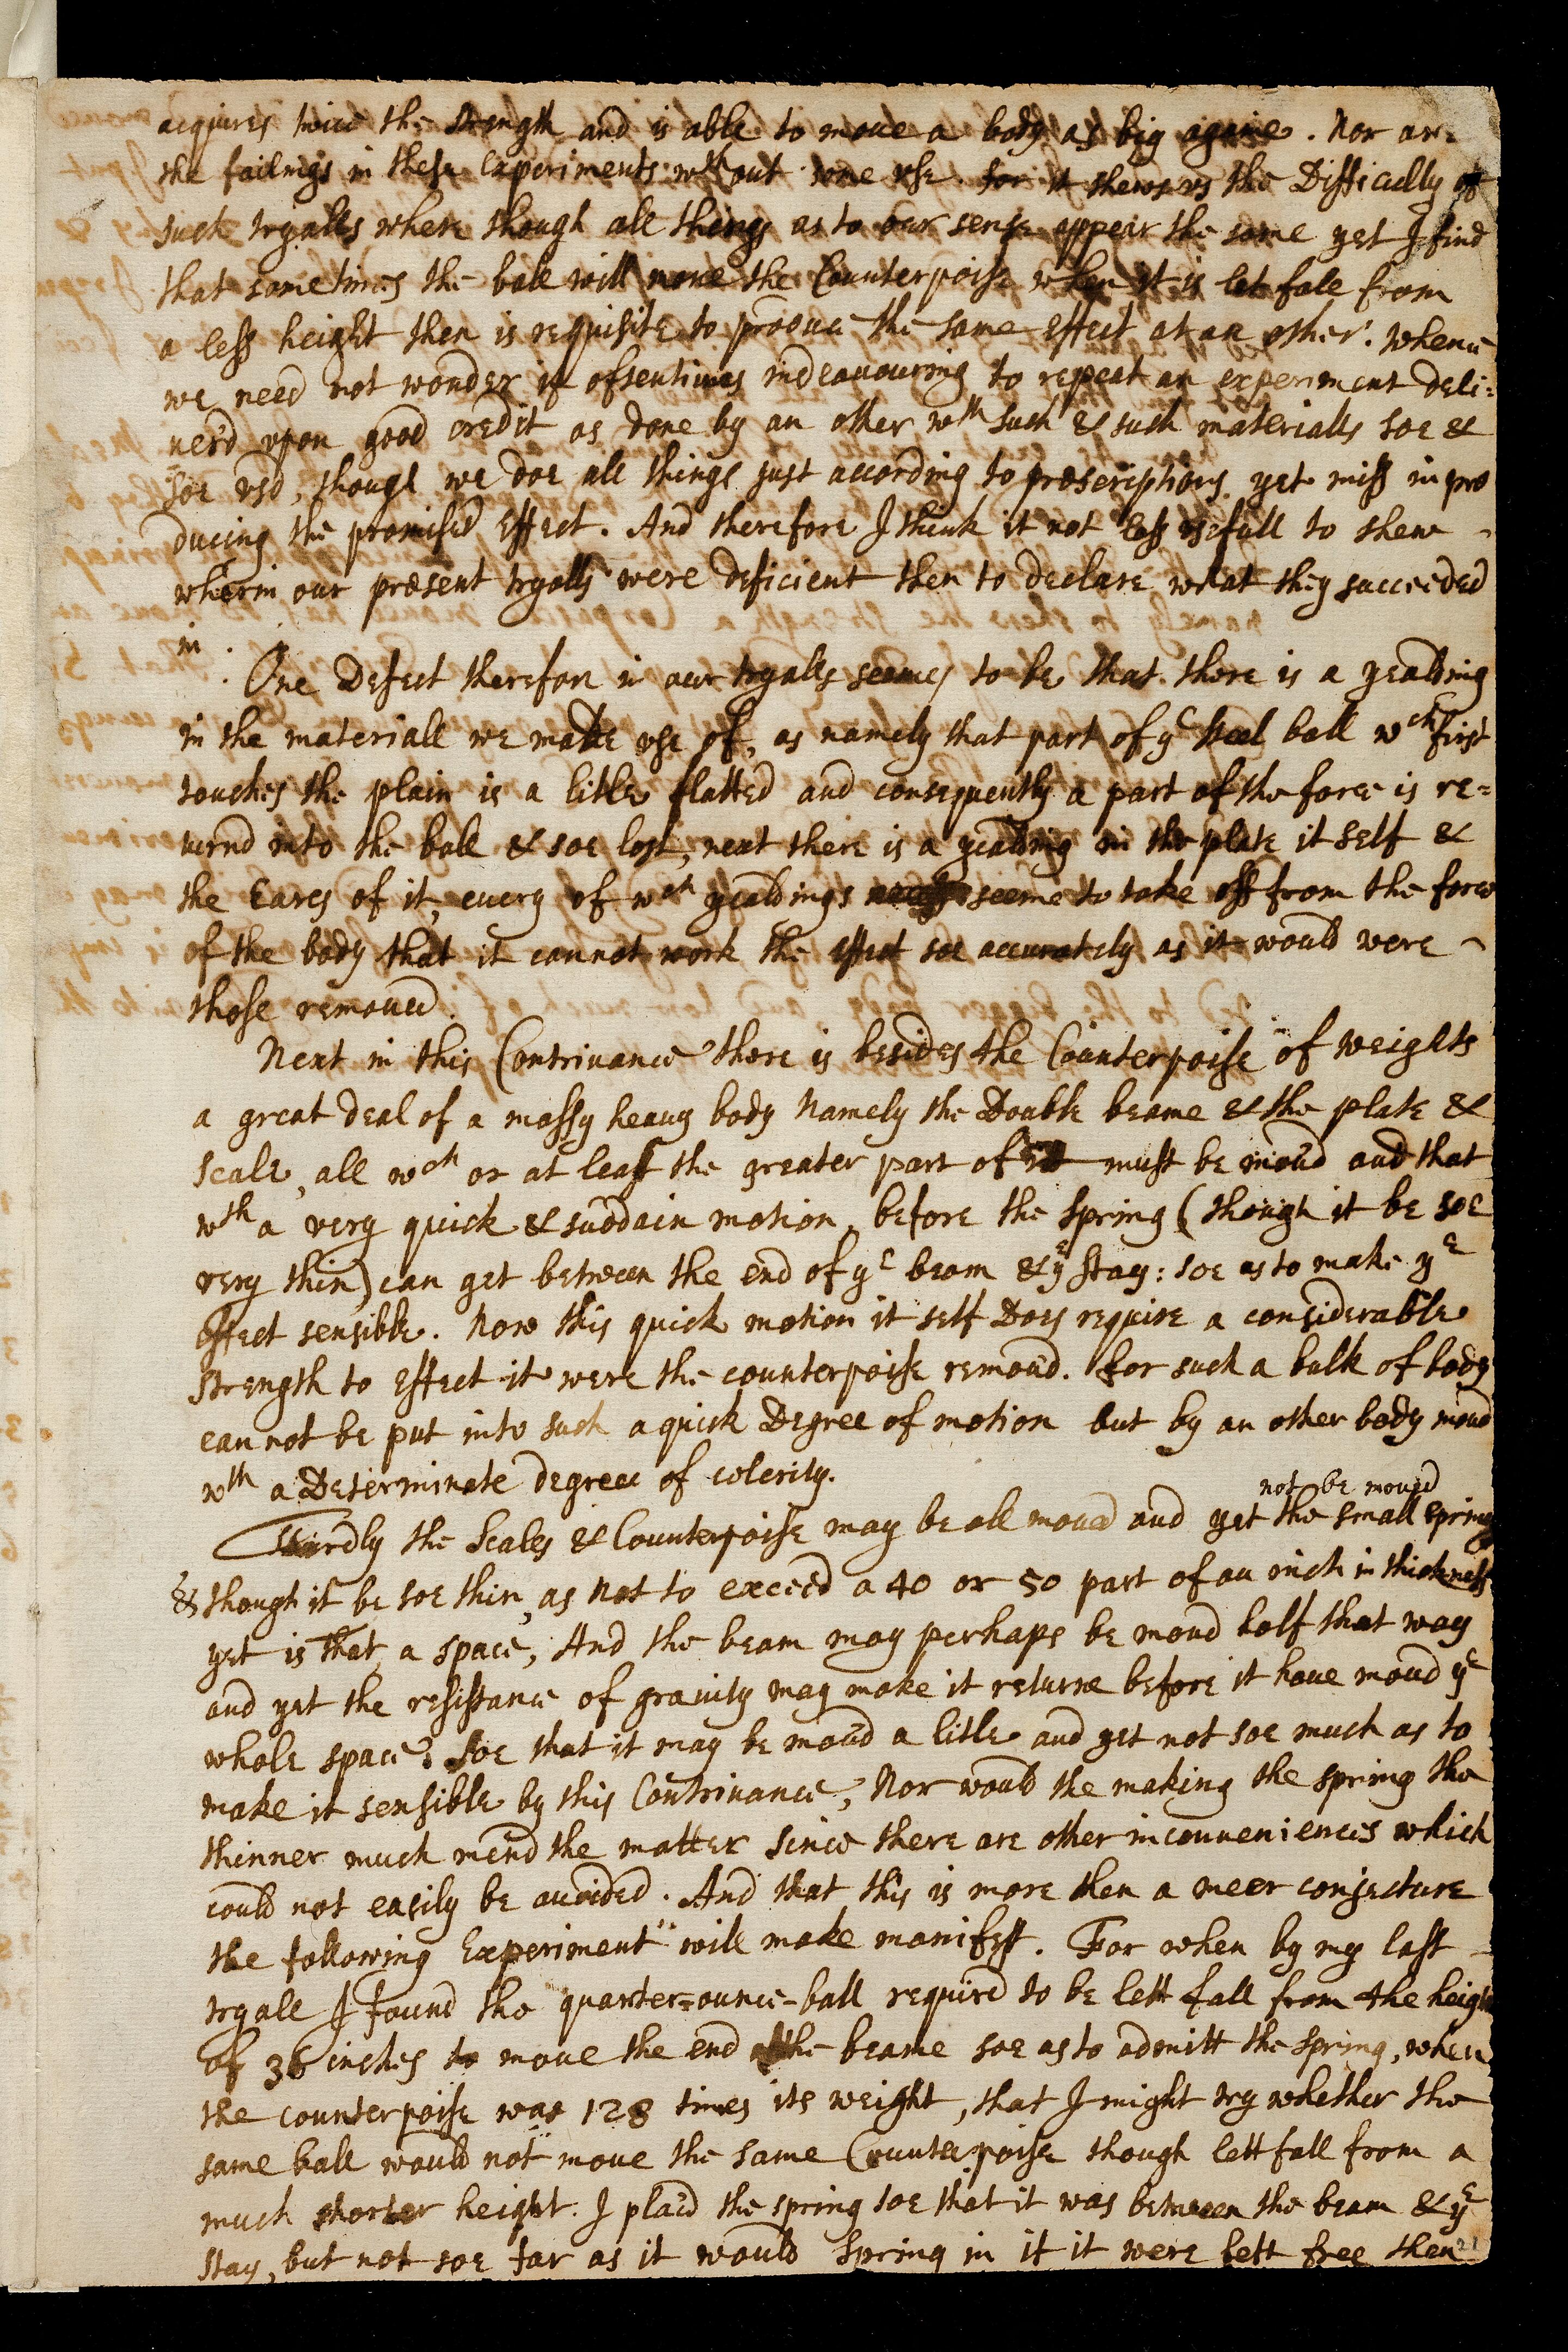 acquires twice the strength and is able to moue a body as big againe. Nor are
the failings in these Experiments wth out some vse. for it shews vs the Difficulty of
such tryalls where though all things as to our sense appear the same yet I find
that sometimes the ball will moue the Counterpoise when it is let fall from
a less height then is requisite to produce the same effect at an other. whence
we need not wonder if oftentimes indeauouring to repeat an experiment deli=
uerd vpon good credit as done by an other wth such & such materialls soe &
soe vsd, though we doe all things just according to præscriptions yet miss in pro
ducing the promised Effect. And therefore I think it not less vsefull to shew
wherin our present tryalls were deficient then to declare what they succeeded
in.
One Defect therefore in our tryalls seemes to be that there is a yealding
in the materiall we make vse of, as namely that part of ye steel ball wch first
touches the plain is a litle flatted and consequently a part of the force is re=
turnd into the ball & soe lost, next there is a yealding in the plate it self &
the Eares of it, euery of wch yealdings seeme to take off from the force
of the body that it cannot work the effect soe accurately as it would were
those remoued.
Next in this Contriuance there is besides the Counterpoise of weights
a great deal of a massy heauy body Namely the Double beame & the plate &
scale, all wch or at least the greater part of it must be moud and that
wth a very quick & suddain motion, before the spring (though it be soe
very thin) can get between the end of ye beam & ye stay: soe as to make ye
effect sensible. Now this quick motion it self Does require a considerable
strength to effect it were the counterpoise remoud. for such a bulk of body
cannot be put into such a quick Degree of motion but by an other body moud
wth a Determinate degree of celerity.
not be moued
Thirdly the Scales & Counterpoise may be all moud and yet the small spring
& though it be soe thin, as not to exceed a 40 or 50 part of an inch in thickness
yet is that a space, And the beam may perhaps be moud half that way
and yet the resistance of grauity may make it returne before it haue moud ye
whole space? Soe that it may be moud a litle and yet not soe much as to
make it sensible by this Contriuance, Nor would the making the spring the
thinner much mend the matter since there are other inconueniences which
could not easily be auoided. And that this is more then a meer conjecture
the following Experiment will make manifest. For when by my last
tryall I found the quarter=ounce-ball requird to be lett fall from the height
of 36 inches to moue the end of the beame soe as to admitt the spring, when
the counterpoise was 128 times its weight, that I might try whether the
same ball would not moue the same Counterpoise though lett fall from a
much shorter height. I plac'd the spring soe that it was between the beam & ye
stay, but not soe far as it would spring in if it were lett free then
21